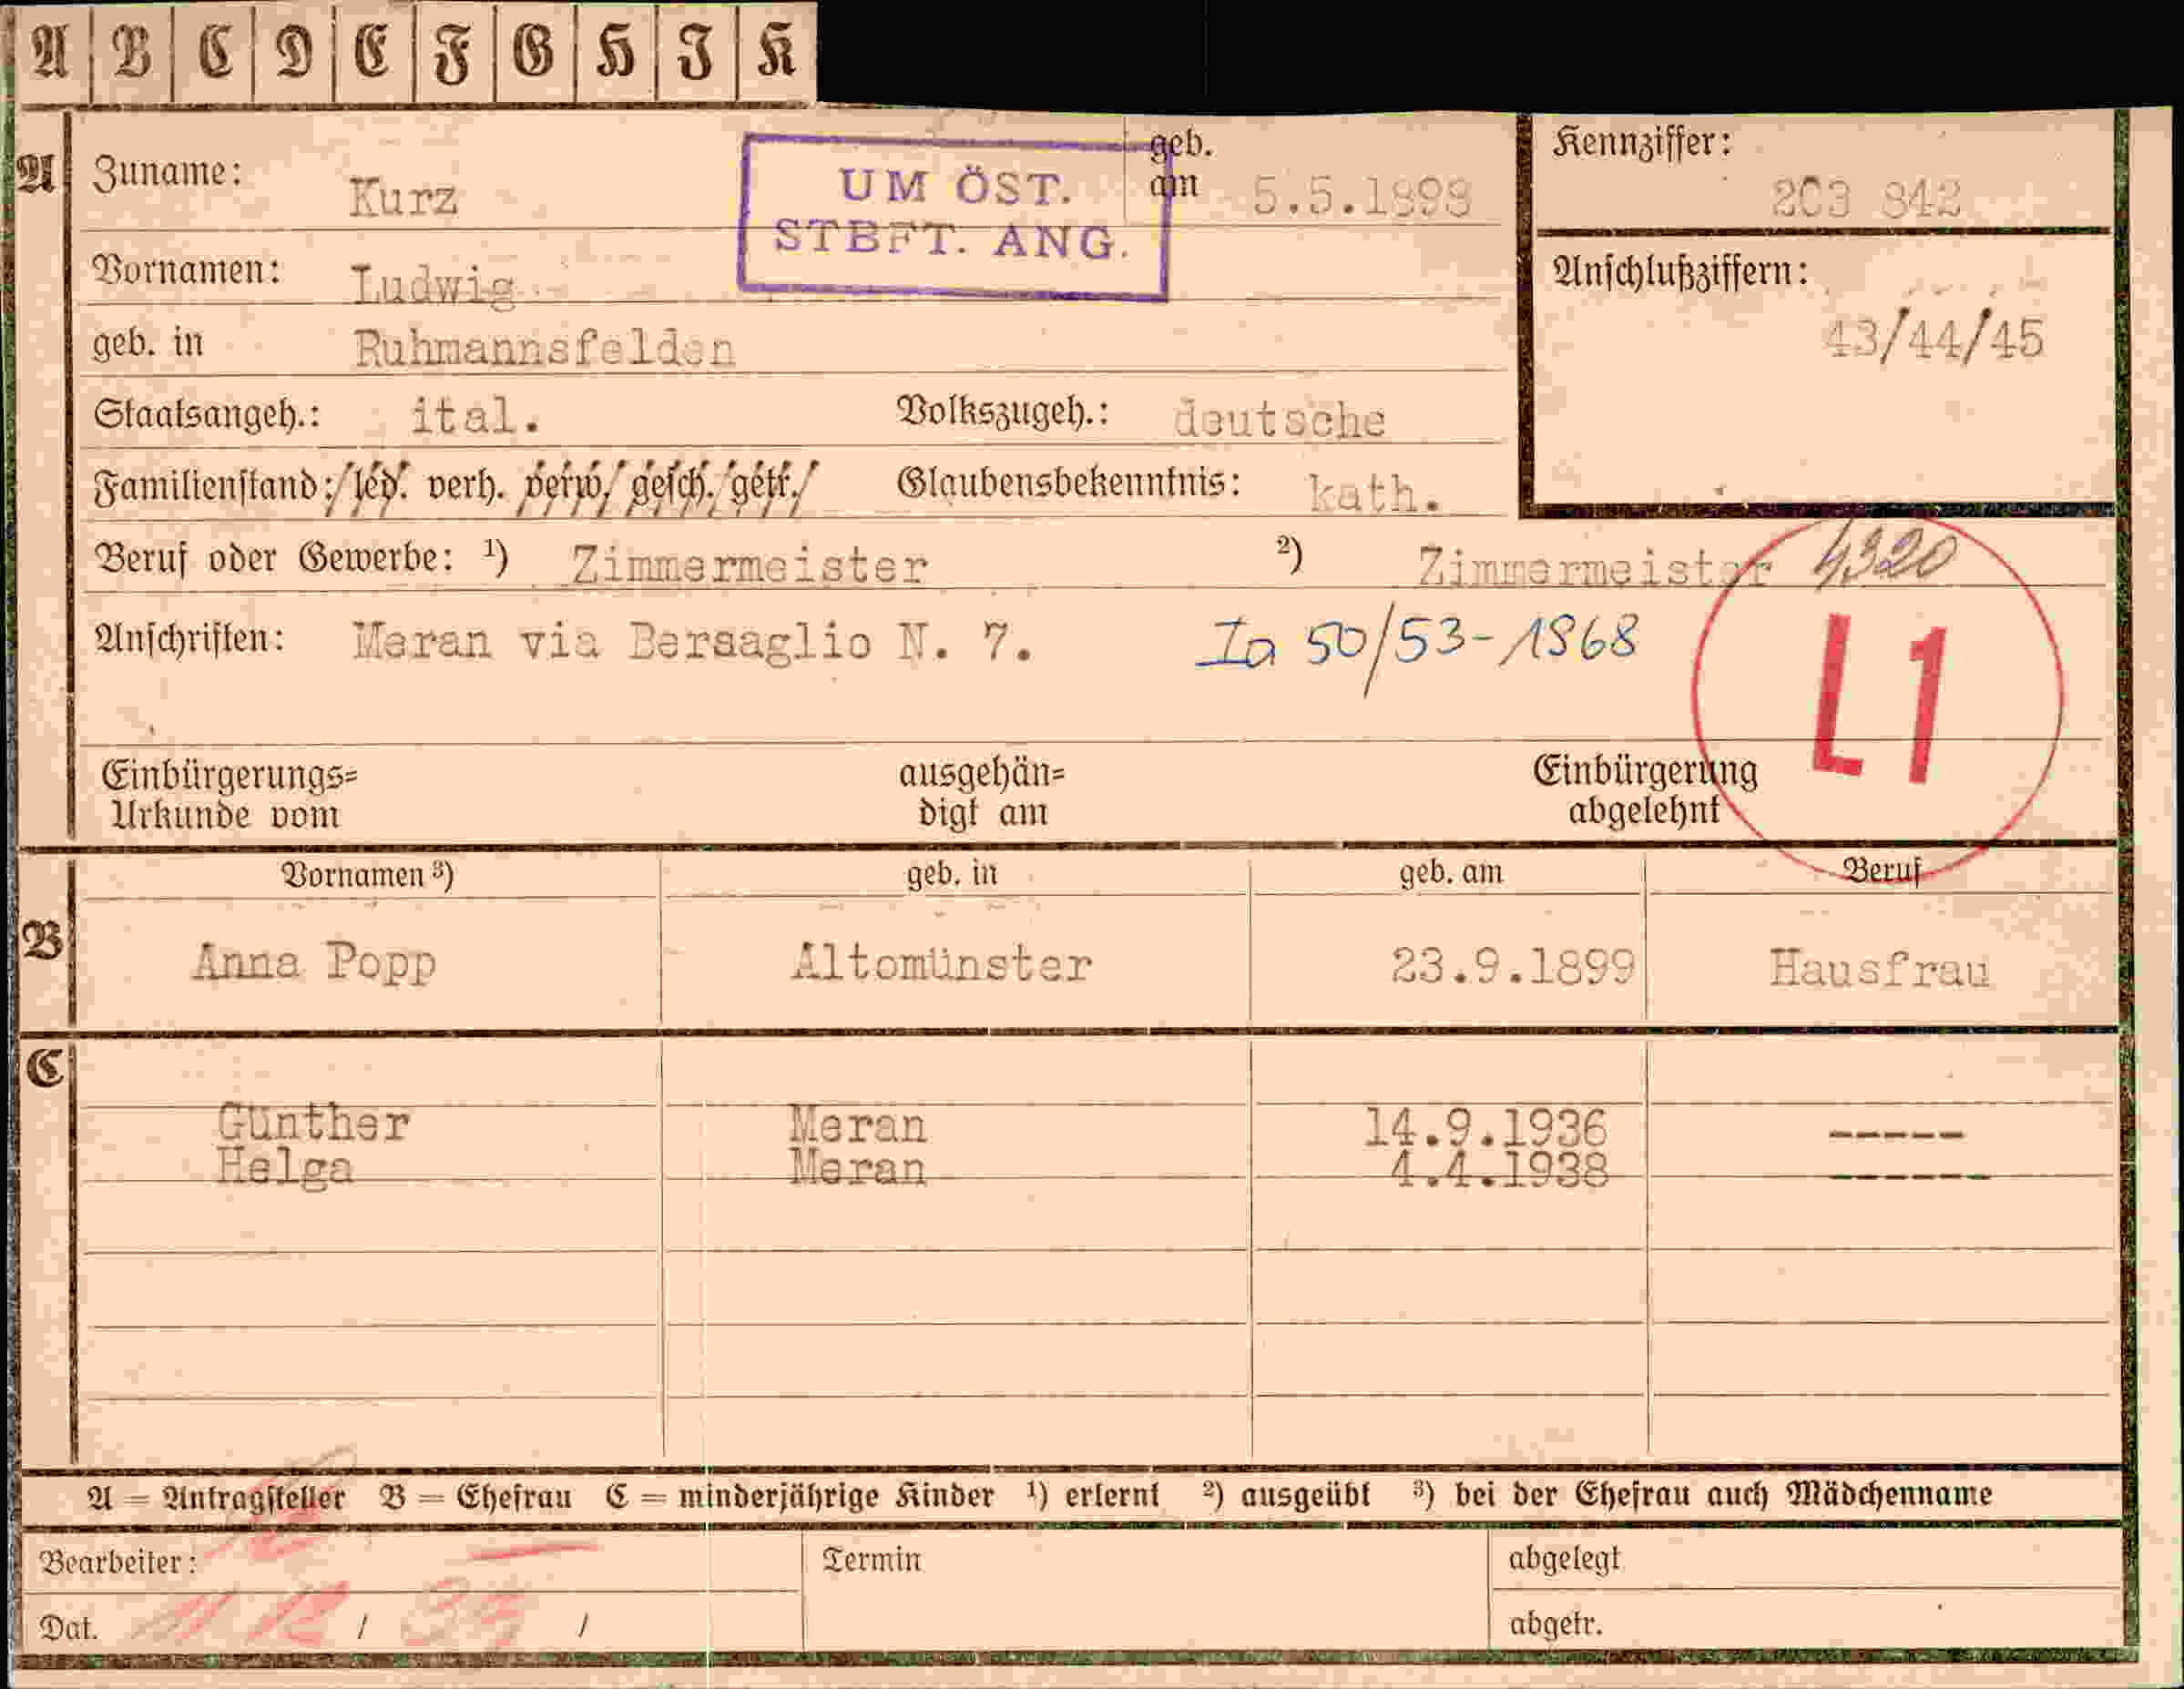 A B C D E F G H J K
A Zuname: Kurz geb. am 5.5.1898 Kennziffer: 203 842
UM ÖST.
STBFT. ANG.
Vornamen: Ludwig Anschlußziffern:
43/44/45
geb. in Ruhmannsfelden
Staatsangeh.: ital. Volkszugeh.: deutsche
Familienstand: led. verh. verw. gesch. getr. Glaubensbekenntnis: kath.
Beruf oder Gewerbe: ¹) Zimmermeister ²) Zimmermeister 4320
Anschriften: Meran via Bersaglio N. 7. Ia 50/53-1968
L1
Einbürgerungs= ausgehän= Einbürgerung
Urkunde vom digt am abgelehnt
Vornamen ³) geb. in geb. am Beruf
B Anna Popp Altomünster 23.9.1899 Hausfrau
C
Günther Meran 14.9.1936 -----
Helga Meran 4.4.1938 ------
A = Antragsteller B = Ehefrau C = minderjährige Kinder ¹) erlernt ²) ausgeübt ³) bei der Ehefrau auch Mädchenname
Bearbeiter: Termin abgelegt
Dat. / / abgetr.